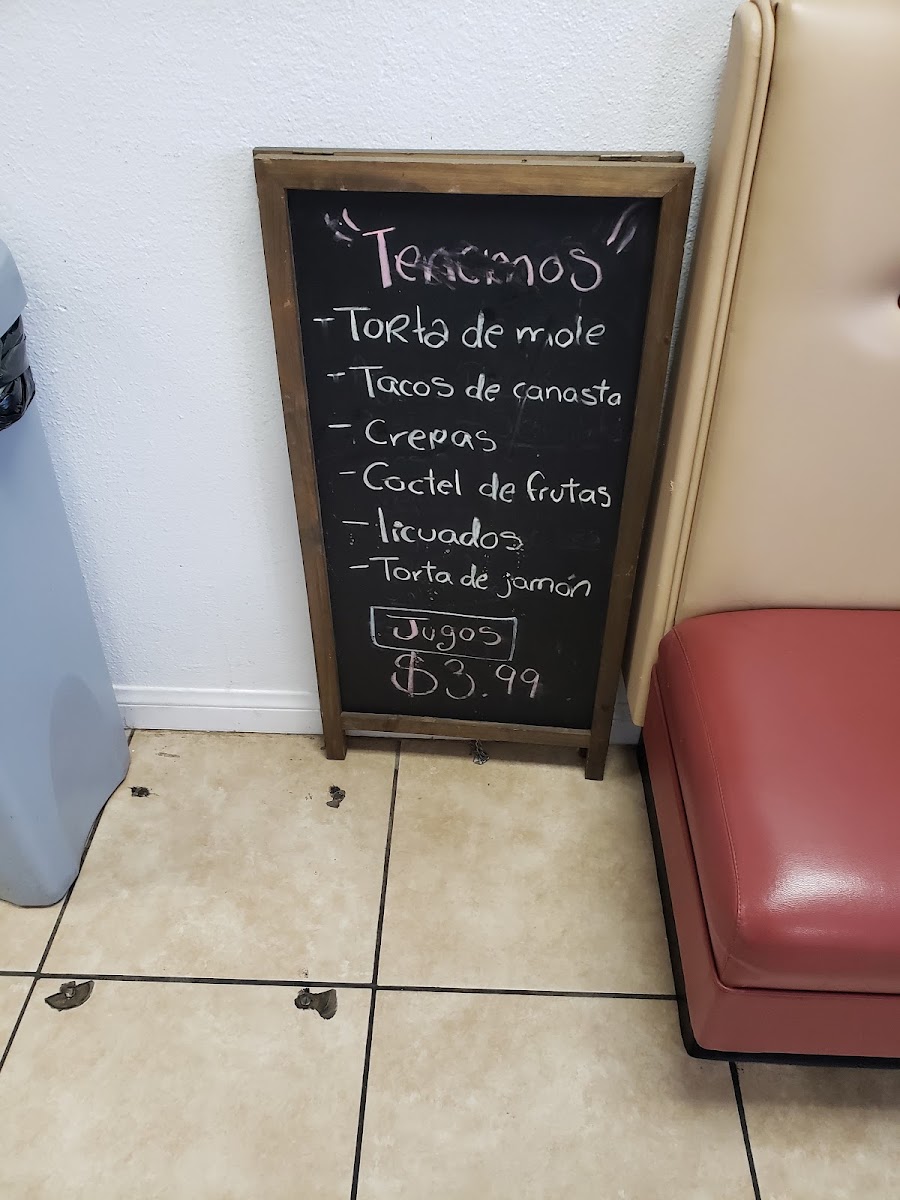 "Tenemos"
- Torta de mole
- Tacos de canasta
- Crepas
- Coctel de frutas
- licuados
- Torta de jamón
Jugos
$3.99